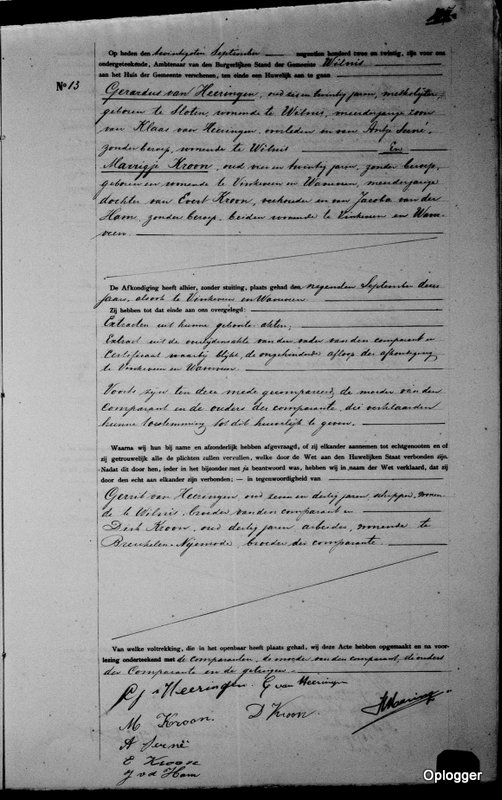 Op heden den twintigsten September negentien honderd twee en twintig, zijn voor ons
ondergeteekende, Ambtenaar van den Burgerlijken Stand der Gemeente Wilnis
aan het Huis der Gemeente verschenen, ten einde een Huwelijk aan te gaan
No 13
Gerardus van Heeringen, oud en twintig jaren,
geboren te Sloten, wonende te Wilnis, meerderjarige zoon
van Klaas van Heeringen, overleden en van Antje Serné,
zonder beroep, wonende te Wilnis En
Marrigje Kroon, oud vier en twintig jaren, zonder beroep,
geboren en wonende te Vinkeveen en Waverveen, meerderjarige
dochter van Evert Kroon, veehouder en van Jacoba van der
Ham, zonder beroep, beiden wonende te Vinkeveen en Waver-
veen.
De Afkondiging heeft alhier, zonder stuiting, plaats gehad den negenden September dezes
jaars, alsook te Vinkeveen en Waverveen
Zij hebben tot dat einde aan ons overgelegd:
Extracten uit hunne geboorte akten;
Extract uit de overlijdensakte van den vader van den comparant en
Certificaat waarbij blijkt de ongehinderde afloop der afkondiging
te Vinkeveen en Waverveen
Voorts zijn ten deze mede gecompareerd, de moeder van den
comparant en de ouders der comparante, die verklaarden
hunne toestemming tot dit huwelijk te geven.
Waarna wij hun bij name en afzonderlijk hebben afgevraagd, of zij elkander aannemen tot echtgenooten en of
zij getrouwelijk alle de plichten zullen vervullen, welke door de Wet aan den Huwelijken Staat verbonden zijn.
Nadat dit door hen, ieder in het bijzonder met ja beantwoord was, hebben wij in naam der Wet verklaard, dat zij
door den echt aan elkander zijn verbonden; — in tegenwoordigheid van
Gerrit van Heeringen, oud zeven en dertig jaren, schipper, wonen-
de te Wilnis, broeder van den comparant en
Dirk Kroon, oud dertig jaren, arbeider, wonende te
Breukelen-Nijenrode, broeder der comparante.
Van welke voltrekking, die in het openbaar heeft plaats gehad, wij deze Acte hebben opgemaakt en na voor-
lezing onderteekend met de comparanten, de moeder van den comparant, de ouders
der Comparante en de getuigen.
v Heeringen. G van Heeringen
M Kroon. D Kroon.
A Serné
E Kroon
J v d Ham
Oplogger